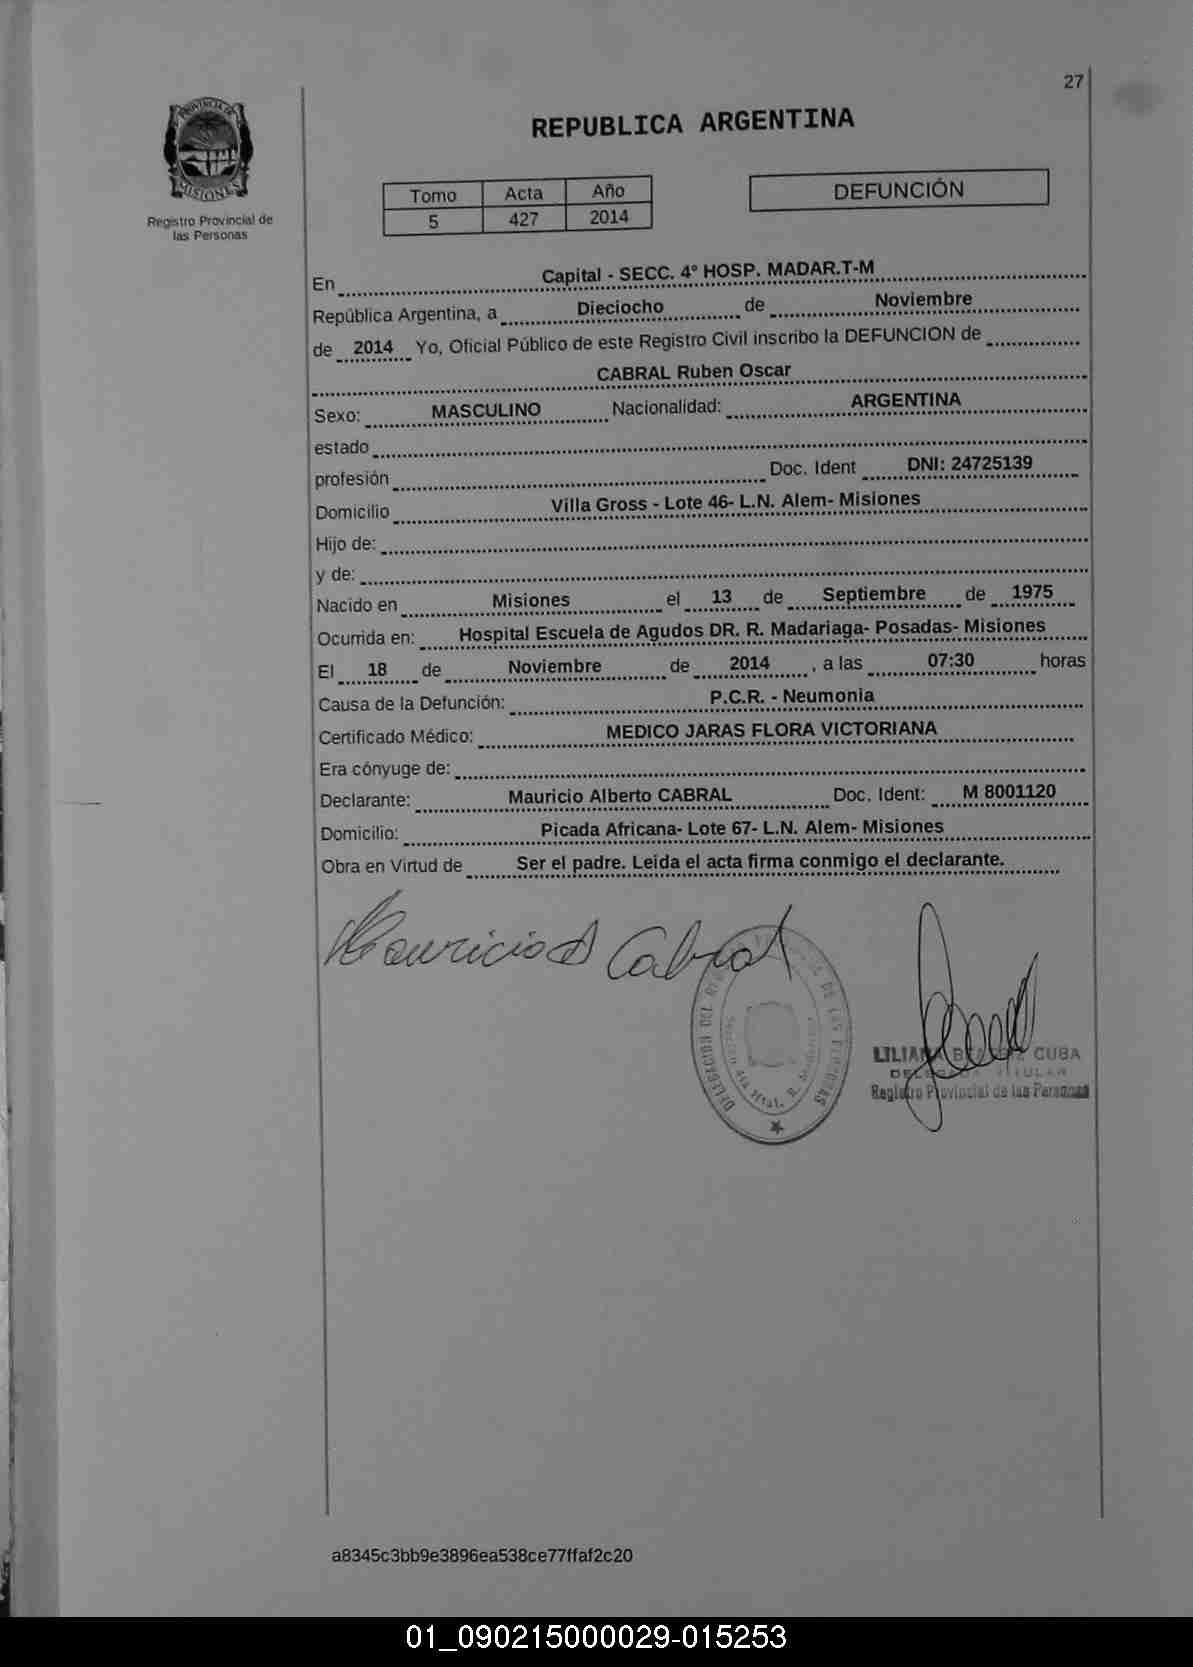 27
PROVINCIA DE
MISIONES
Registro Provincial de
las Personas
REPUBLICA ARGENTINA
Tomo Acta Año
5 427 2014
DEFUNCIÓN
En Capital - SECC. 4º HOSP. MADAR.T-M
República Argentina, a Dieciocho de Noviembre
de 2014 Yo, Oficial Público de este Registro Civil inscribo la DEFUNCION de
CABRAL Ruben Oscar
Sexo: MASCULINO Nacionalidad: ARGENTINA
estado
profesión Doc. Ident DNI: 24725139
Domicilio Villa Gross - Lote 46- L.N. Alem- Misiones
Hijo de:
y de:
Nacido en Misiones el 13 de Septiembre de 1975
Ocurrida en: Hospital Escuela de Agudos DR. R. Madariaga- Posadas- Misiones
El 18 de Noviembre de 2014 , a las 07:30 horas
Causa de la Defunción: P.C.R. - Neumonia
Certificado Médico: MEDICO JARAS FLORA VICTORIANA
Era cónyuge de:
Declarante: Mauricio Alberto CABRAL Doc. Ident: M 8001120
Domicilio: Picada Africana- Lote 67- L.N. Alem- Misiones
Obra en Virtud de Ser el padre. Leida el acta firma conmigo el declarante.
Mauricio A Cabral
DELEGACION DEL DE LAS PERSONAS
LILIANA BEATRIZ CUBA
DELEGADA TITULAR
Registro Provincial de las Personas
a8345c3bb9e3896ea538ce77ffaf2c20
01_090215000029-015253